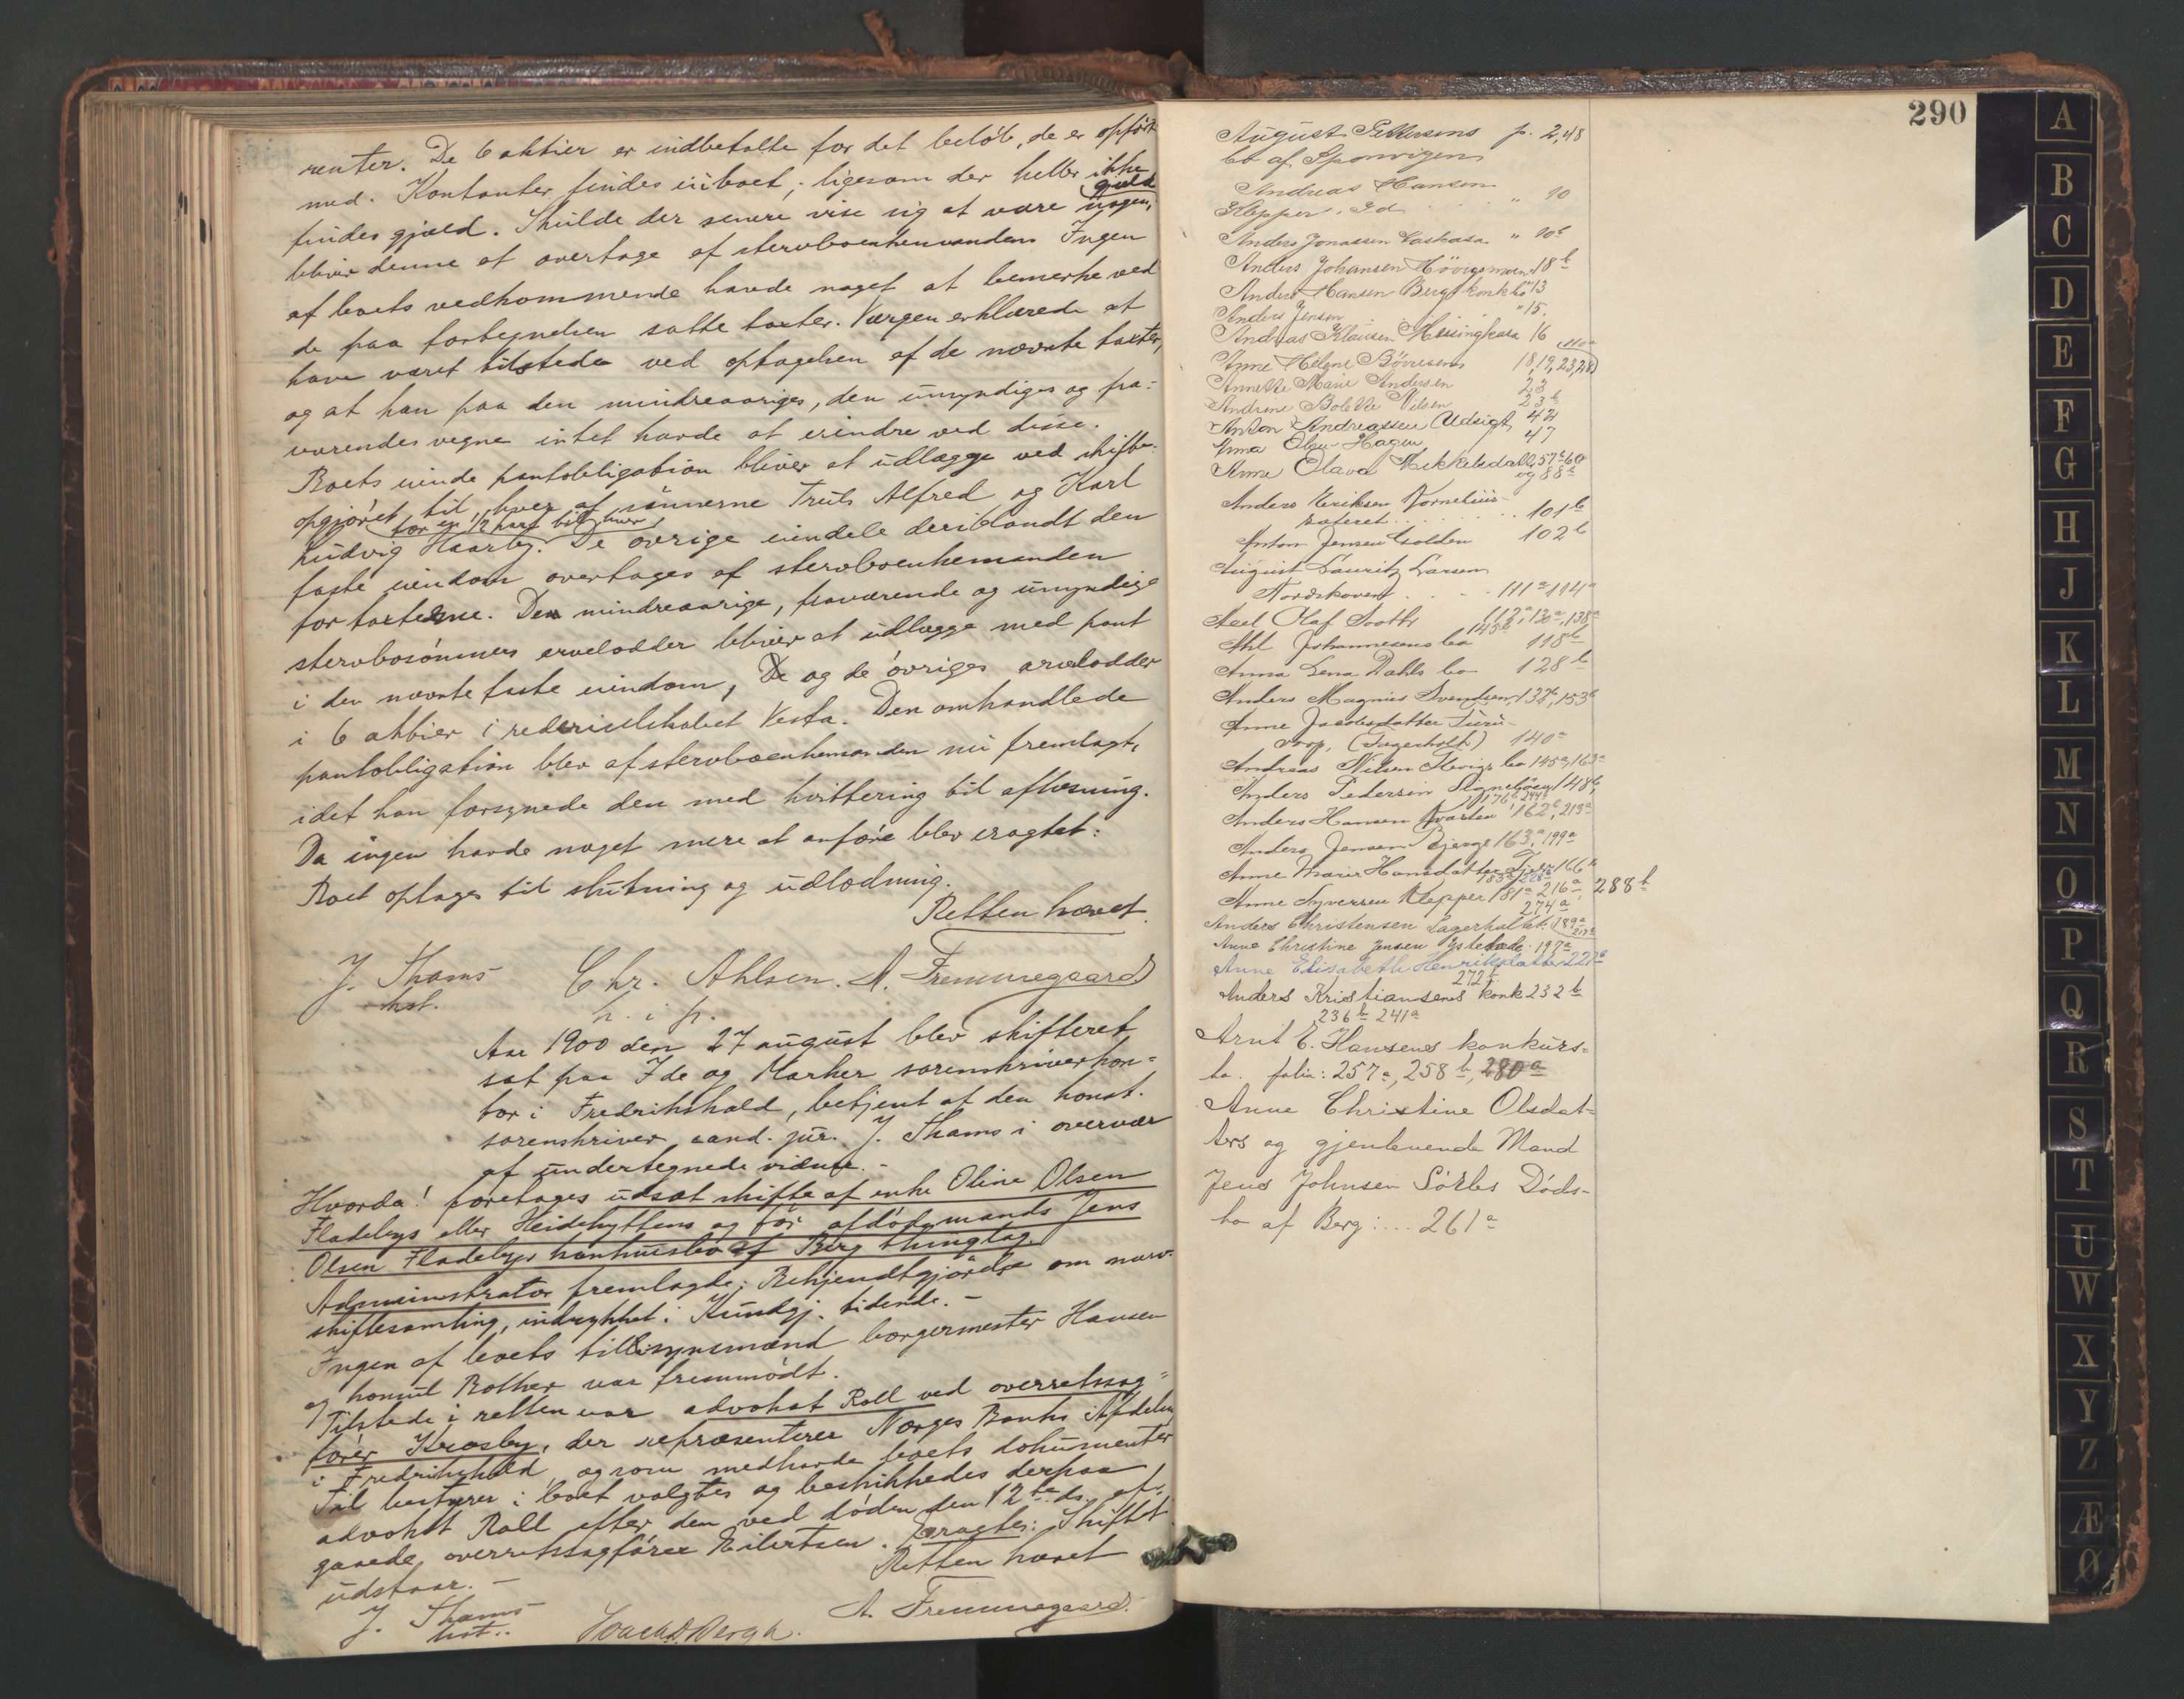 renter. De 6 aktier er indbetalte for det beløb, de er opført
med. Kontanter findes i boet, ligesom der heller ikke
findes gjæld. Skulde der senere vise sig at være nogen gjæld
bliver denne at overtage af stervboenkemanden. Ingen
af boets vedkommende havde noget at bemerke ved
de paa fortegnelsen satte takster. Værgen erklærede at
have været tilstede ved optagelsen af de nævnte takster,
og at han paa den mindreaariges, den umyndiges og fra-
værendes vegne intet havde at erindre ved disse.
Boets eiende pantobligation bliver at udlægge ved skifte-
opgjøret til hver af sønnerne Truls Alfred og Karl
for en 1/2 part til hver
Ludvig Haarby. De øvrige eiendele deriblandt den
faste eiendom overtages af stervboenkemanden
for taksterne. Den mindreaarige, fraværende og umyndige
stervbosønners arvelodder bliver at udlægge med pant
i den nævnte faste eiendom, De og de øvriges arvelodder
i 6 aktier i rederiselskabet Vesta. Den omhandlede
pantobligation blev af stervboenkemanden nu fremlagt,
idet han forsynede den med kvittering til aflæsning.
Da ingen havde noget mere at anføre blev eragtet:
Boet optages til slutning og udlodning.
Retten hævet.
J. Thams Chr. Ahlsen. A. Fremmegaard
kst. h. i p.
Aar 1900 den 27 august blev skifteret
sat paa Ide og Marker sorenskriverkon-
tor i Fredrikshald, betjent af den konst.
sorenskriver, cand. jur. J. Thams i overvær
af undertegnede vidner. -
Hvorda! foretages udsat skifte af enke Oline Olsen
Fladebys eller Heidehyttens og for afdøde mands Jens
Olsen Fladebys konkursbo af Berg thinglag.
Administrator fremlagde: Bekjendtgjørelse om nærv.
skiftesamling, indrykket i Kundgj. tidende. -
Ingen af boets tillsynsmænd borgermester Hansen
og konsul Rother var fremmødt.
Tilstede i retten var advokat Roll ved overretssag-
fører Krosby, der repræsenterer Norges Banks Afdeling
i Fredrikshald, og som medhavde boets dokumenter
Til bestyrer i boet valgtes og beskikkedes derpaa
advokat Roll efter den ved døden den 12te ds. af-
gaaede overretssagfører Eilertsen. Eragtet: Skiftet
udstaar. - Retten hævet
J. Thams A. Fremmegaard.
kst..
290
August Pettersens p. 2,48
bo af Sponvigen
Andreas Hansen
Klepper. Id " 10
Anders Jonassen " 10b
Anders Johansen 18b
Anders Hansen Berg konkbo " 13
Anders Jensen " 15.
Andreas Klausen 16
Anne Helene Børresens 18, 19, 23, 28
Annette Marie Andersen 23
Andrine Bolette Nilsen 23b
Anton Andreassen Udsigt 42
Anna Olsen Hagen 47
Anne Olava 57a 60
og 88a
Anders Eriksen Kornelius-
rateret 101b
Anton Jensen 102b
August Lauritz Larsen
Nordskoven 111a 114a
Axel Olaf 112a, 130a, 138a
145b
Ahl Johannesens bo 118b
Anna Lena Dahls bo 128b
Anders Magnus Svendsen, 132b, 153b
Anne Jacobsdatter
(Lagerholt) 140a
Andreas Nilsen bo 145a, 163a
Anders Pedersen 148b
176b 244b
Anders Hansen 162b, 213a
Anders Jensen Bjerge 163a, 199a
Anne Marie Hansdatter 166b
Anne Syversen Klepper 181a 216a, 288b
274a
Anders Christensen Lagerholtet 189a
Anne Christine Jensen Ystehede 197a
Anne Elisabeth Henriksdatter 227a
272b
Anders Kristiansens konk 232b
236b 241a
Arnt E. Hansens konkurs-
bo. folio: 257a, 258b, 280a
Anne Christine Olsdat-
ters og gjenlevende Mand
Jens Johnsen Sørlis Døds-
bo af Berg: .... 261a
A
B
C
D
E
F
G
H
J
K
L
M
N
O
P
Q
R
S
T
U
W
X
Y
Z
Æ
Ø